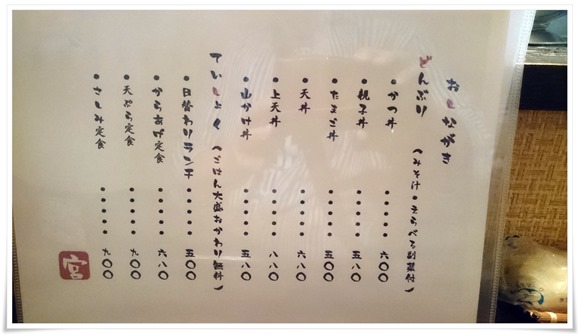 おしながき
どんぶり（みそ汁・えらべる副菜付）
・かつ丼・・・・・六〇〇
・親子丼・・・・・五八〇
・たまご丼・・・・・五〇〇
・天丼・・・・・六八〇
・上天丼・・・・・八八〇
・山かけ丼・・・・・五八〇
ていしょく（ごはん大盛おかわり無料）
・日替わりランチ・・・・・五〇〇
・からあげ定食・・・・・六八〇
・天ぷら定食・・・・・九〇〇
・さしみ定食・・・・・九〇〇